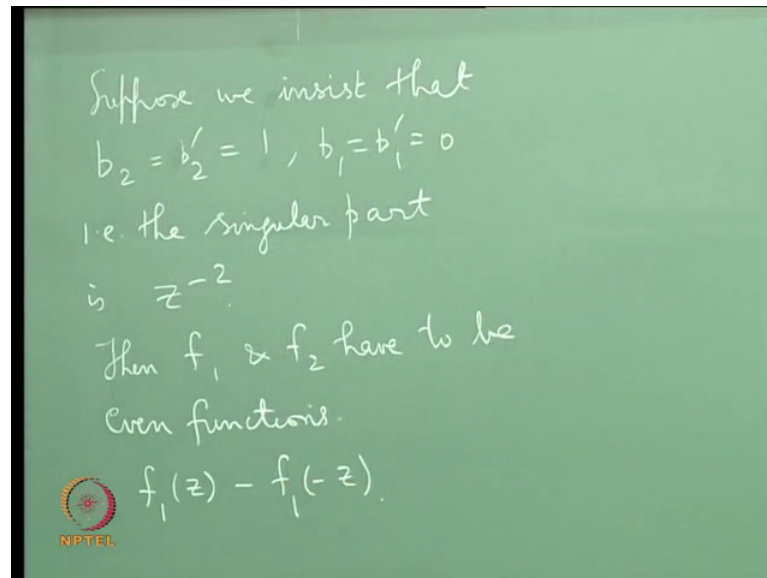 Suppose we insist that
b₂ = b₂′ = 1, b₁ = b₁′ = 0
i.e. the singular part
is z⁻².
Then f₁ & f₂ have to be
even functions.
f₁(z) − f₁(−z).
NPTEL